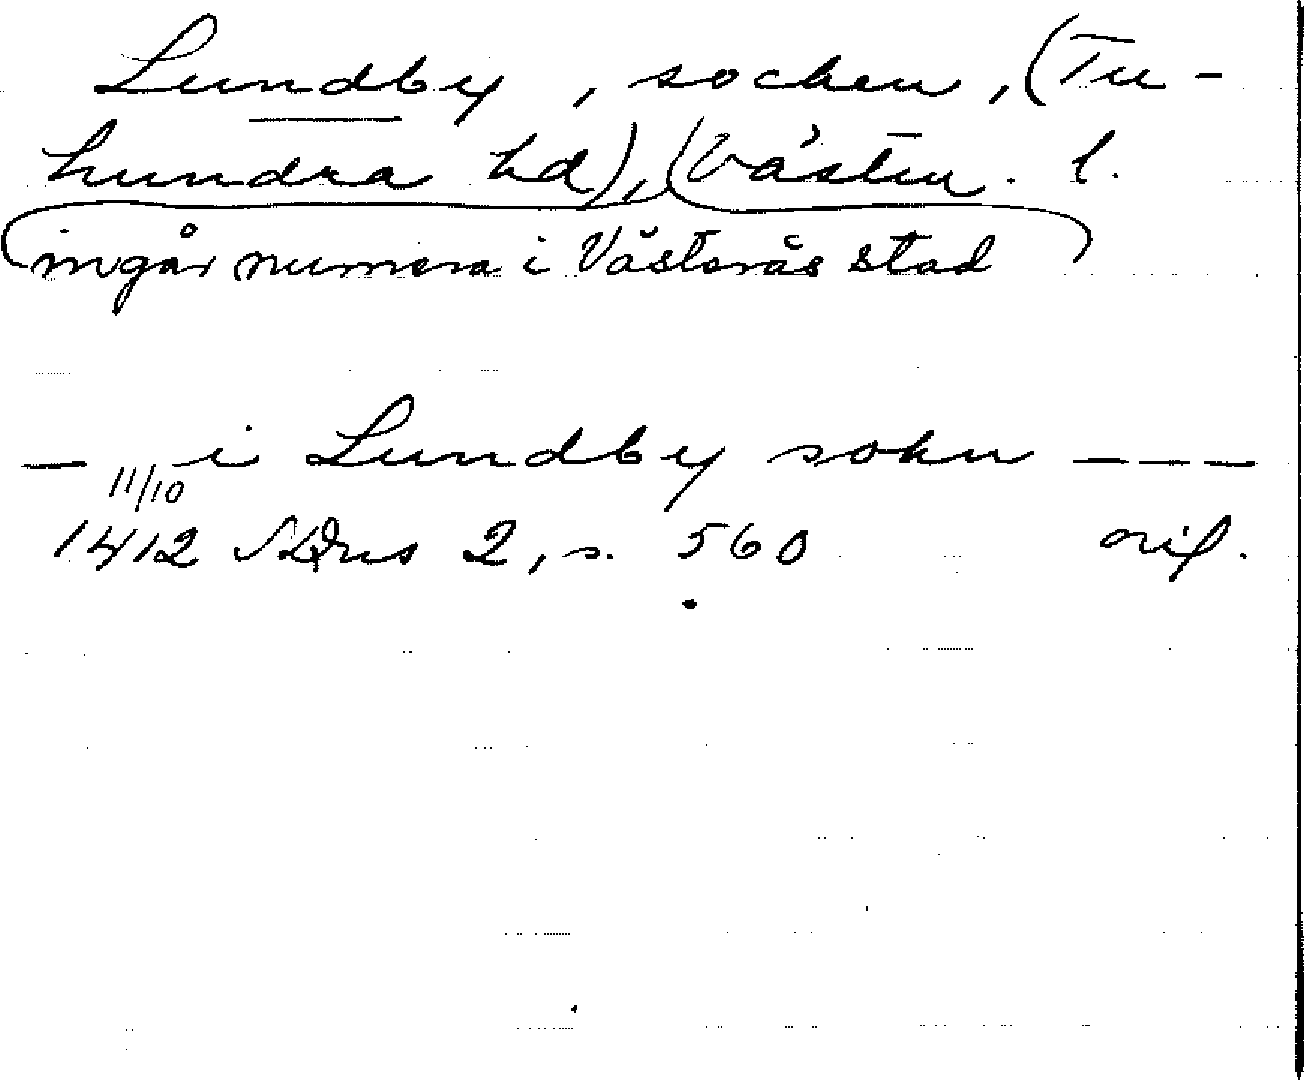 Lundby, socken, (Tu-
hundra hd), (Västm. l.
ingår numera i Västerås stad
— i Lundby sokn ---
11/10
1412 SDns 2, s. 560 orig.